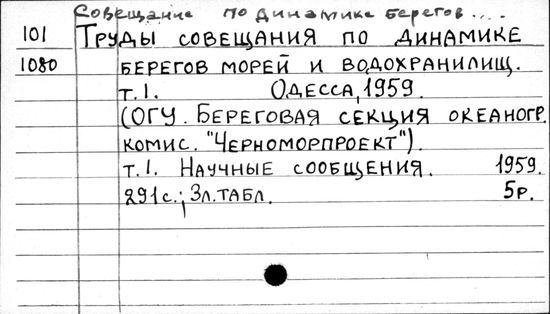 Совещание по динамике берегов ....
101 Труды совещания по динамике
1080 берегов морей и водохранилищ.
т.1. Одесса, 1959.
(ОГУ. Береговая секция океаногр.
комис. "Черноморпроект").
т.1. Научные сообщения. 1959.
291с.; 3л.табл. 5р.